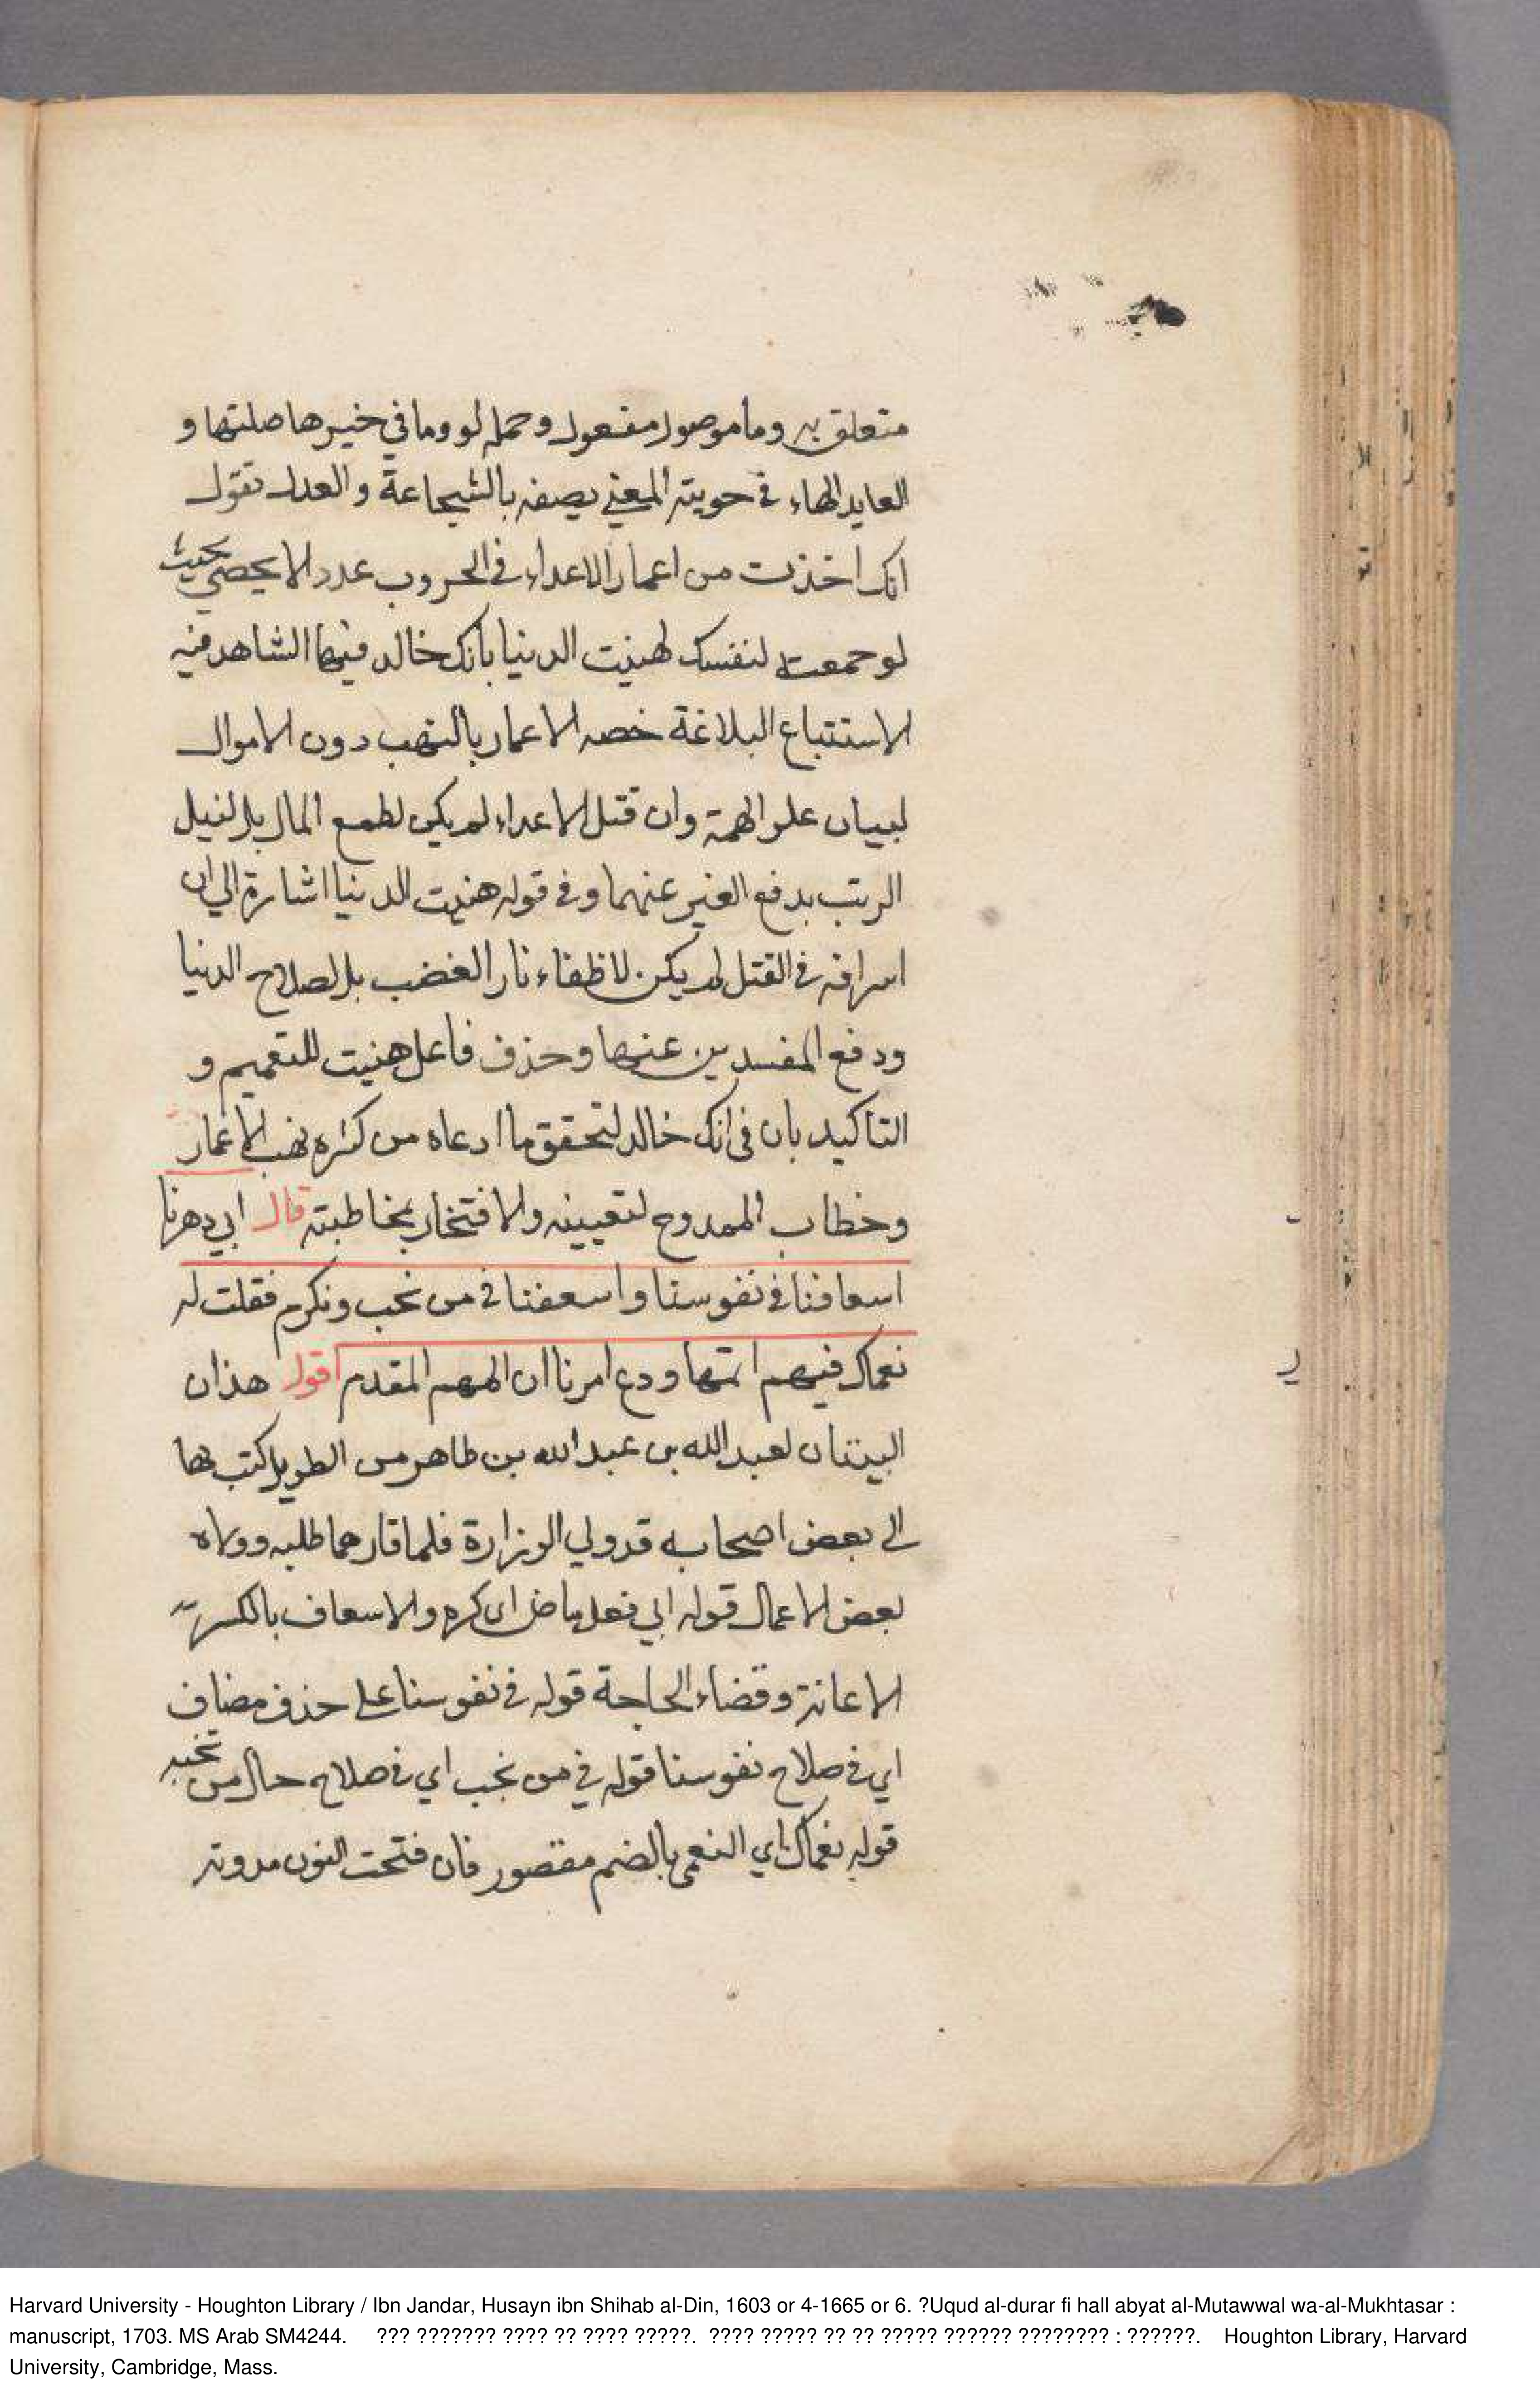 متعلق به وما موصول مفعول وجمله لو وما في خيرها صلتها و
العايد الهاء في حويته المعني يصفه بالشجاعة والعدل تقول
انك اخذت من اعمار الاعداء في الحروب عددا لا يحصي بحيث
لو جمعت لنفسك لهنيت الدنيا بانك خالد فيها الشاهد فيه
الاستتباع البلاغة خصه الاعمار بالنهب دون الاموال
لبيان علو الهمة وان قتل الاعداء لم يكن لطمع المال بل لنيل
الرتب بدفع الغير عنهما وفي قوله هنيت الدنيا اشارة الي ان
اسرافه في القتل لم يكن لاظفاء نار الغضب بل لصلاح الدنيا
ودفع المفسدين عنها وحذف فاعل هنيت للتعميم و
التاكيد بان في انك خالد لتحقق ما ادعاه من كثره نهب الاعمار
وخطاب الممدوح لتعيينه والافتخار بمخاطبته قال ابي دهرنا
اسعافنا في نفوسنا واسعفنا في من نحب ونكرم فقلت له
نعماك فيهم اتمها ودع امرنا ان المهم المقدم اقول هذان
البيتان لعبد الله بن عبد الله بن طاهر من الطويل كتب بها
الي بعض اصحابه قد ولي الوزارة فلما قارهما طلبه وولاه
بعض الاعمال قوله ابي فعل ماض اي كره والاسعاف بالكسر
الاعانة وقضاء الحاجة قوله في نفوسنا علي حذف مضاف
اي في صلاح نفوسنا قوله في من نحب اي في صلاح حال من نحبه
قوله نعماك اي النعمي بالضم مقصور فان فتحت النون مدوته
Harvard University - Houghton Library / Ibn Jandar, Husayn ibn Shihab al-Din, 1603 or 4-1665 or 6. ?Uqud al-durar fi hall abyat al-Mutawwal wa-al-Mukhtasar :
manuscript, 1703. MS Arab SM4244. ??? ??????? ???? ?? ???? ?????. ???? ????? ?? ?? ????? ?????? ???????? : ??????. Houghton Library, Harvard
University, Cambridge, Mass.